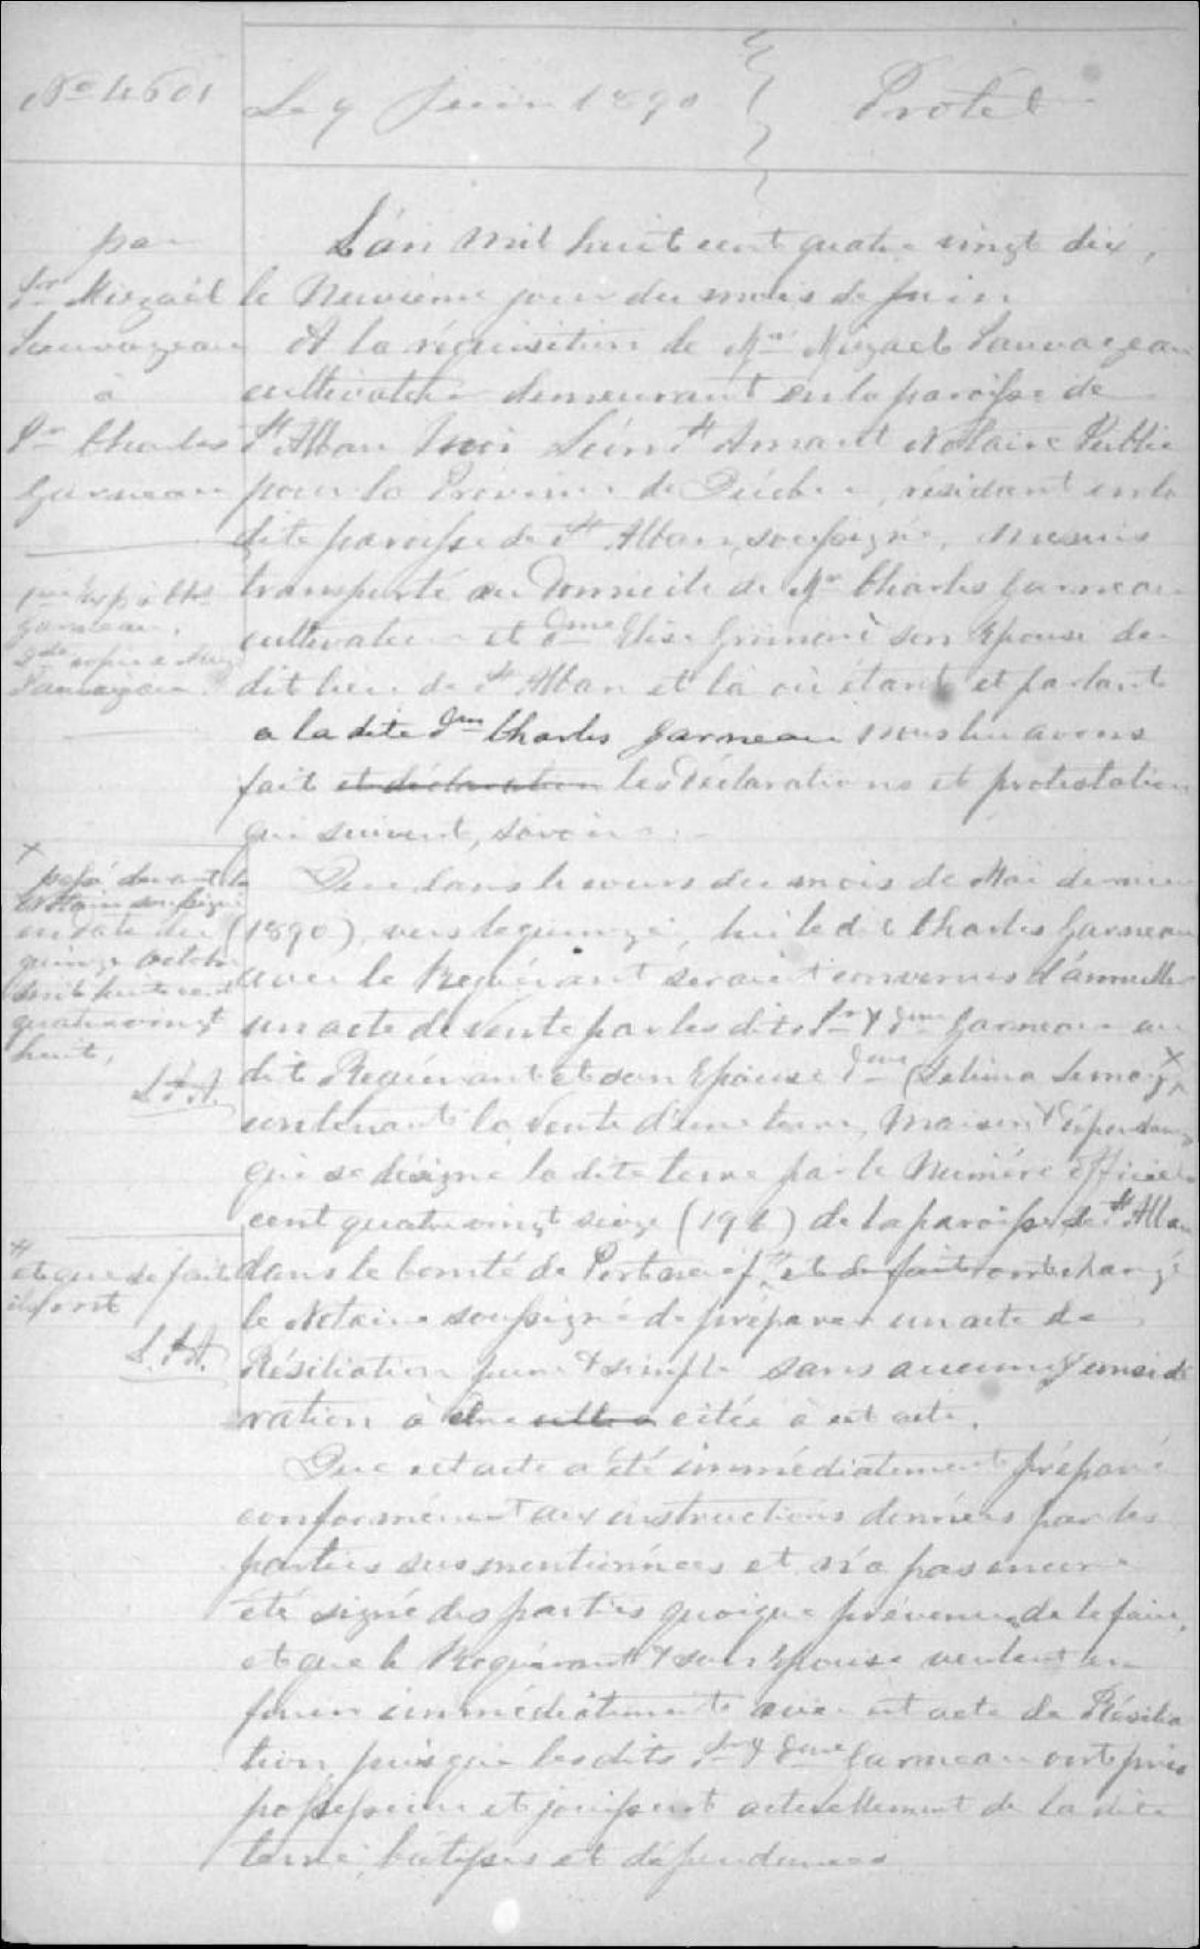 No 4601
Le 9 Juin 1890
Protêt
par
Sr Mizaël
Sauvageau
à
Sr Charles
Garneau
1ère Exp à Chs
Garneau.
2de copie à Miz
Sauvageau
L'an mil huit cent quatre vingt dix,
le Neuvième jour du mois de Juin
A la réquisition de Mr Mizaël Sauvageau
cultivateur demeurant en la paroisse de
St Alban Nous Léon St Amant Notaire Public
pour la Province de Québec, résidant en la
dite paroisse de St Alban, soussigné, nous
transporté au Domicile de Mr Charles Garneau
cultivateur et Dme Elise son Epouse du
dit lieu de St Alban et là où étant et parlant
a la dite Dme Charles Garneau nous lui avons
fait et déclaration les Déclarations et protestation
qui suivent, savoir :
Que dans le cours du mois de Mai dernier
(1890), vers le quinze, lui le dit Charles Garneau
avec le Requérant seraient convenus d'annuller
un acte de vente par les dits Sr & Dme Garneau au
dit Requérant et son Epouse Dme Célina x
contenant la vente d'une terre, Maison & dépendances
qui se désigne la dite terre par le Numéro officiel
cent quatre vingt seize (196) de la paroisse de St Alban
dans le Comté de Portneuf # et de fait ont chargé
le Notaire soussigné de préparer un acte de
Résiliation pure & simple sans aucune considé
ration à être citée à cet acte.
Que cet acte a été immédiatement préparé
conformément aux instructions données par les
parties susmentionnées et n'a pas encore
été signé des parties quoique prévenues de le faire,
et que le Requérant & son Epouse veulent en
finir immédiatement avec cet acte de Résilia
tion puisque les dits Sr & Dme Garneau ont pris
possession et jouissent actuellement de la dite
terre, bâtisses et dépendances
x
passé devant le
Notaire soussigné
en date du
quinze octobre
mil huit cent
quatre vingt
huit,
L.St.A.
#
et que de fait
ils ont
L.St.A.